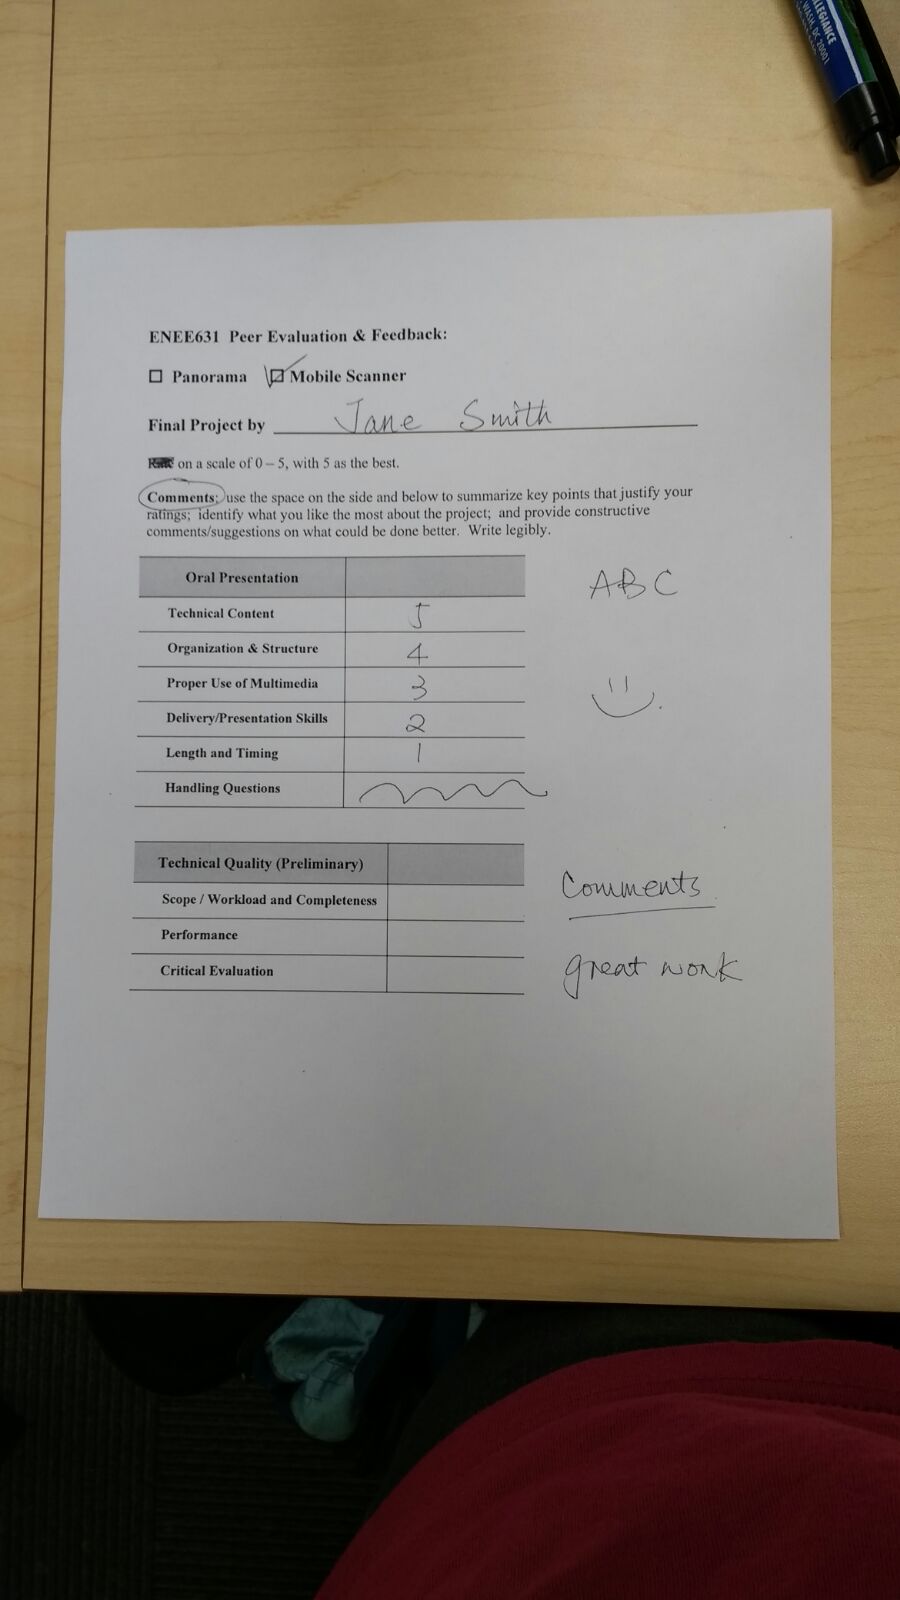 ALLEGIANCE
WASH, DC 20001
ENEE631 Peer Evaluation & Feedback:
☐ Panorama ☑ Mobile Scanner
Final Project by Jane Smith
on a scale of 0 – 5, with 5 as the best.
Comments: use the space on the side and below to summarize key points that justify your
ratings; identify what you like the most about the project; and provide constructive
comments/suggestions on what could be done better. Write legibly.
Oral Presentation
ABC
Technical Content 5
Organization & Structure 4
Proper Use of Multimedia 3
Delivery/Presentation Skills 2
Length and Timing 1
Handling Questions
Technical Quality (Preliminary)
Comments
Scope / Workload and Completeness
Performance
Critical Evaluation
great work